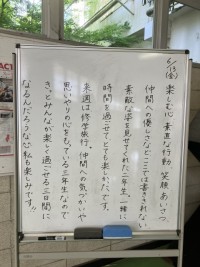 6/13(金)
楽しむ心 素直な行動 笑顔 あいさつ
仲間への優しさなどここでは書ききれない
素敵な姿を見せてくれた二年生。一緒に
時間を過ごせて、とても楽しかったです。
来週は修学旅行。仲間への気づかいや
思いやりの心をもっている三年生なので
きっとみんなが楽しく過ごせる三日間に
なるんだろうな♡私も楽しみです!!
ACT